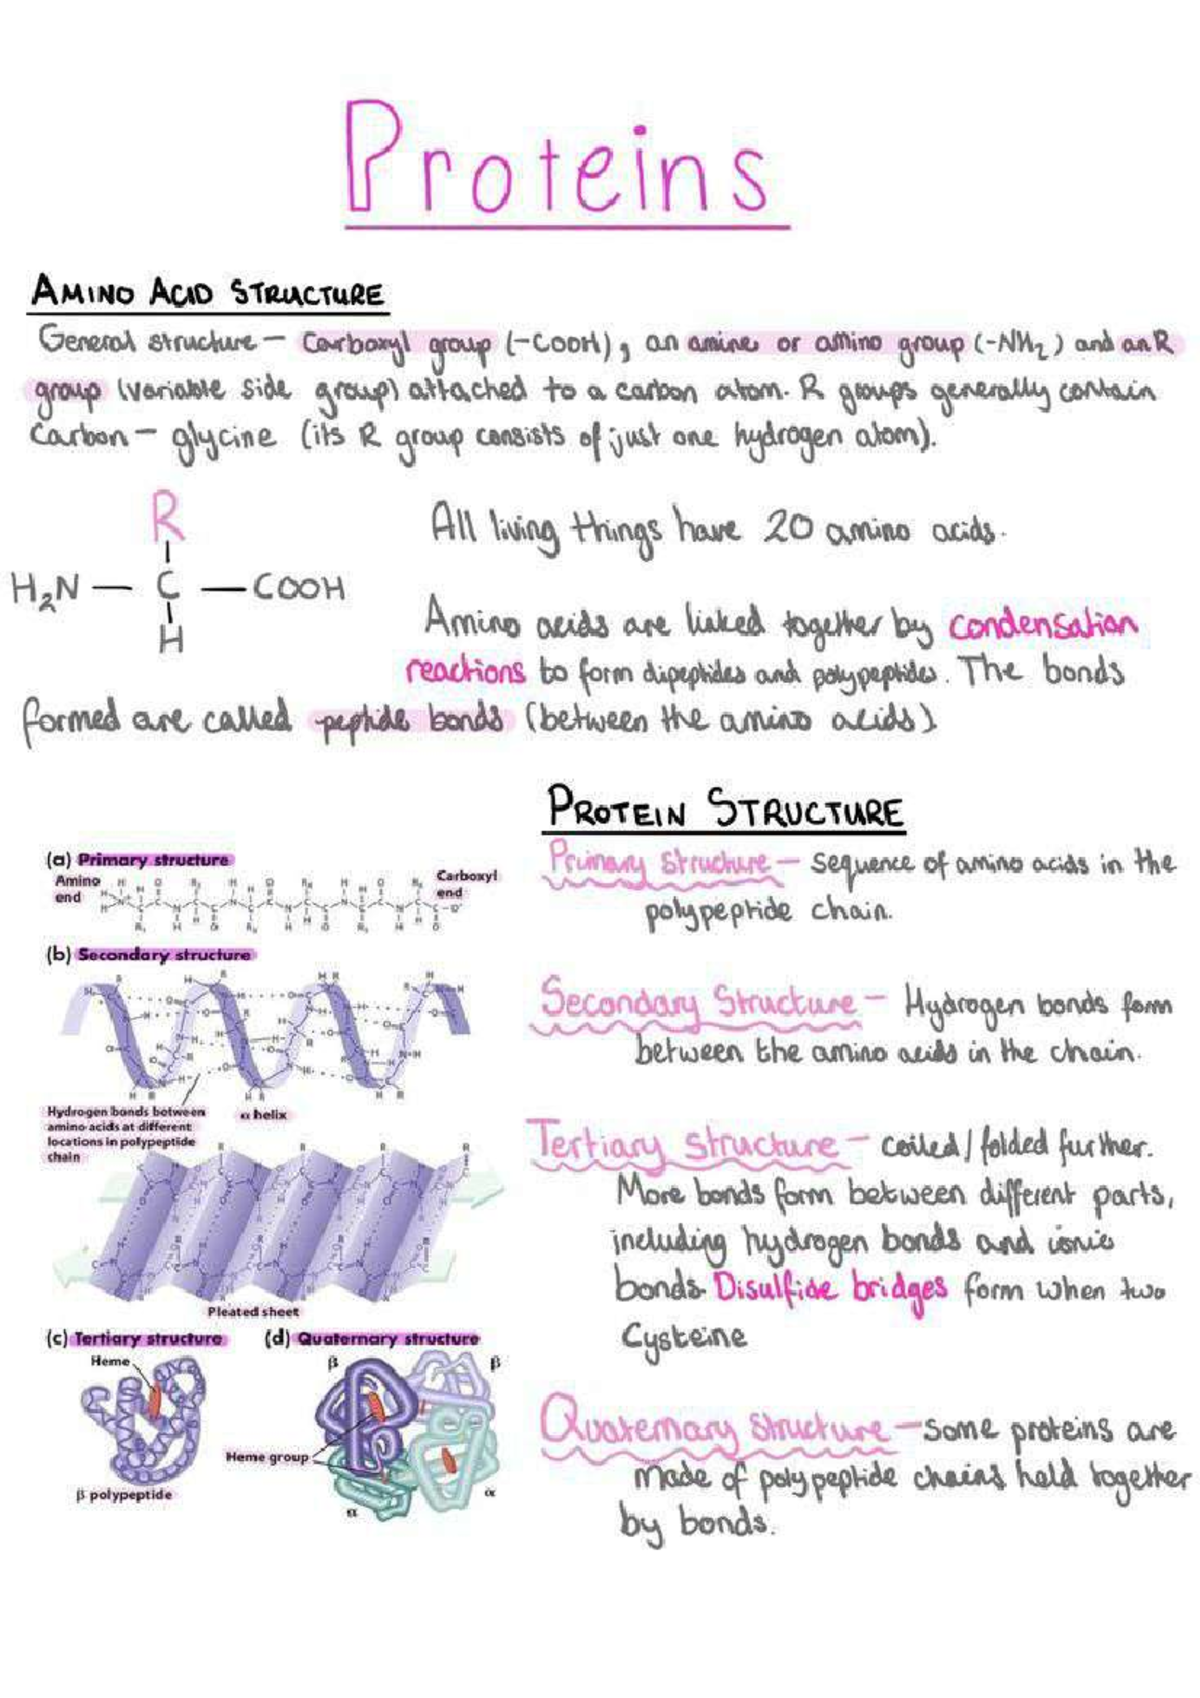 Proteins
AMINO ACID STRUCTURE
General structure – Carboxyl group (-COOH), an amine or amino group (-NH₂) and an R
group (variable side group) attached to a carbon atom. R groups generally contain
Carbon – glycine (its R group consists of just one hydrogen atom).
R
H₂N — C — COOH
H
All living things have 20 amino acids.
Amino acids are linked together by condensation
reactions to form dipeptides and polypeptides. The bonds
formed are called peptide bonds (between the amino acids)
PROTEIN STRUCTURE
Primary Structure – sequence of amino acids in the
polypeptide chain.
Secondary Structure – Hydrogen bonds form
between the amino acids in the chain.
Tertiary Structure – coiled/folded further.
More bonds form between different parts,
including hydrogen bonds and ionic
bonds. Disulfide bridges form when two
Cysteine
Quaternary Structure – some proteins are
made of polypeptide chains held together
by bonds.
(a) Primary structure
Amino
end
Carboxyl
end
(b) Secondary structure
Hydrogen bonds between
amino acids at different
locations in polypeptide
chain
α helix
Pleated sheet
(c) Tertiary structure
Heme
β polypeptide
(d) Quaternary structure
β
β
Heme group
α
α